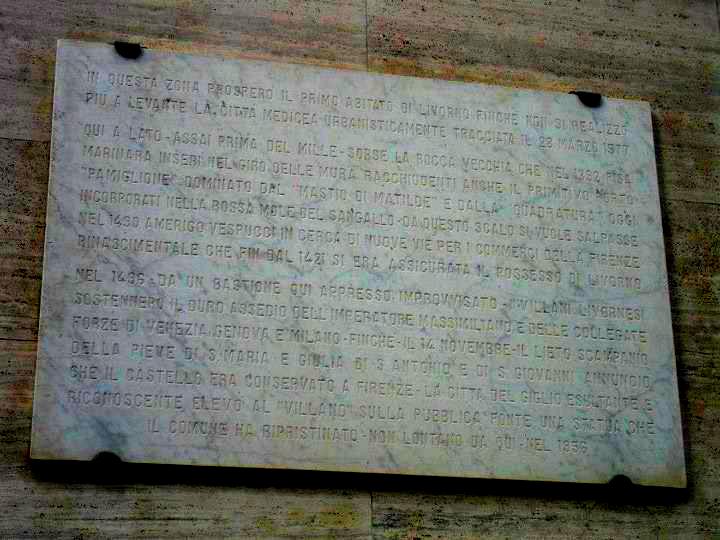 IN QUESTA ZONA PROSPERÒ IL PRIMO ABITATO DI LIVORNO FINCHÈ NON SI REALIZZÒ
PIÙ A LEVANTE LA CITTÀ MEDICEA URBANISTICAMENTE TRACCIATA IL 28 MARZO 1577
QUI A LATO - ASSAI PRIMA DEL MILLE - SORSE LA ROCCA VECCHIA CHE NEL 1392 PISA
MARINARA INSERÌ NEL GIRO DELLE MURA RACCHIUDENTI ANCHE IL PRIMITIVO PORTO
"PAMIGLIONE" DOMINATO DAL "MASTIO DI MATILDE" E DALLA "QUADRATURA" OGGI
INCORPORATI NELLA ROSSA MOLE DEL SANGALLO - DA QUESTO SCALO SI VUOLE SALPASSE
NEL 1490 AMERIGO VESPUCCI IN CERCA DI NUOVE VIE PER I COMMERCI DELLA FIRENZE
RINASCIMENTALE CHE FIN DAL 1421 SI ERA ASSICURATA IL POSSESSO DI LIVORNO
NEL 1496 - DA UN BASTIONE QUI APPRESSO IMPROVVISATO - I "VILLANI" LIVORNESI
SOSTENNERO IL DURO ASSEDIO DELL'IMPERATORE MASSIMILIANO E DELLE COLLEGATE
FORZE DI VENEZIA, GENOVA E MILANO - FINCHÈ - IL 14 NOVEMBRE - IL LIETO SCAMPANIO
DELLA PIEVE DI S. MARIA E GIULIA DI S. ANTONIO E DI S. GIOVANNI ANNUNCIÒ
CHE IL CASTELLO ERA CONSERVATO A FIRENZE - LA CITTÀ DEL GIGLIO ESULTANTE E
RICONOSCENTE ELEVÒ AL "VILLANO" SULLA PUBBLICA FONTE UNA STATUA CHE
IL COMUNE HA RIPRISTINATO - NON LONTANO DA QUI - NEL